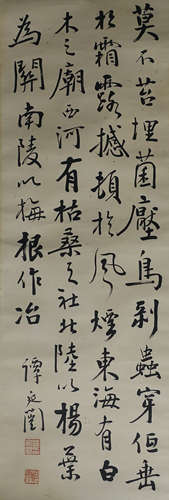 莫不苔埋菌壓鳥剥蟲穿低垂
於霜露撼頓於風煙東海有白
木之廟西河有枯桑之社北陸以楊葉
為關南陵以梅根作冶
譚延闓